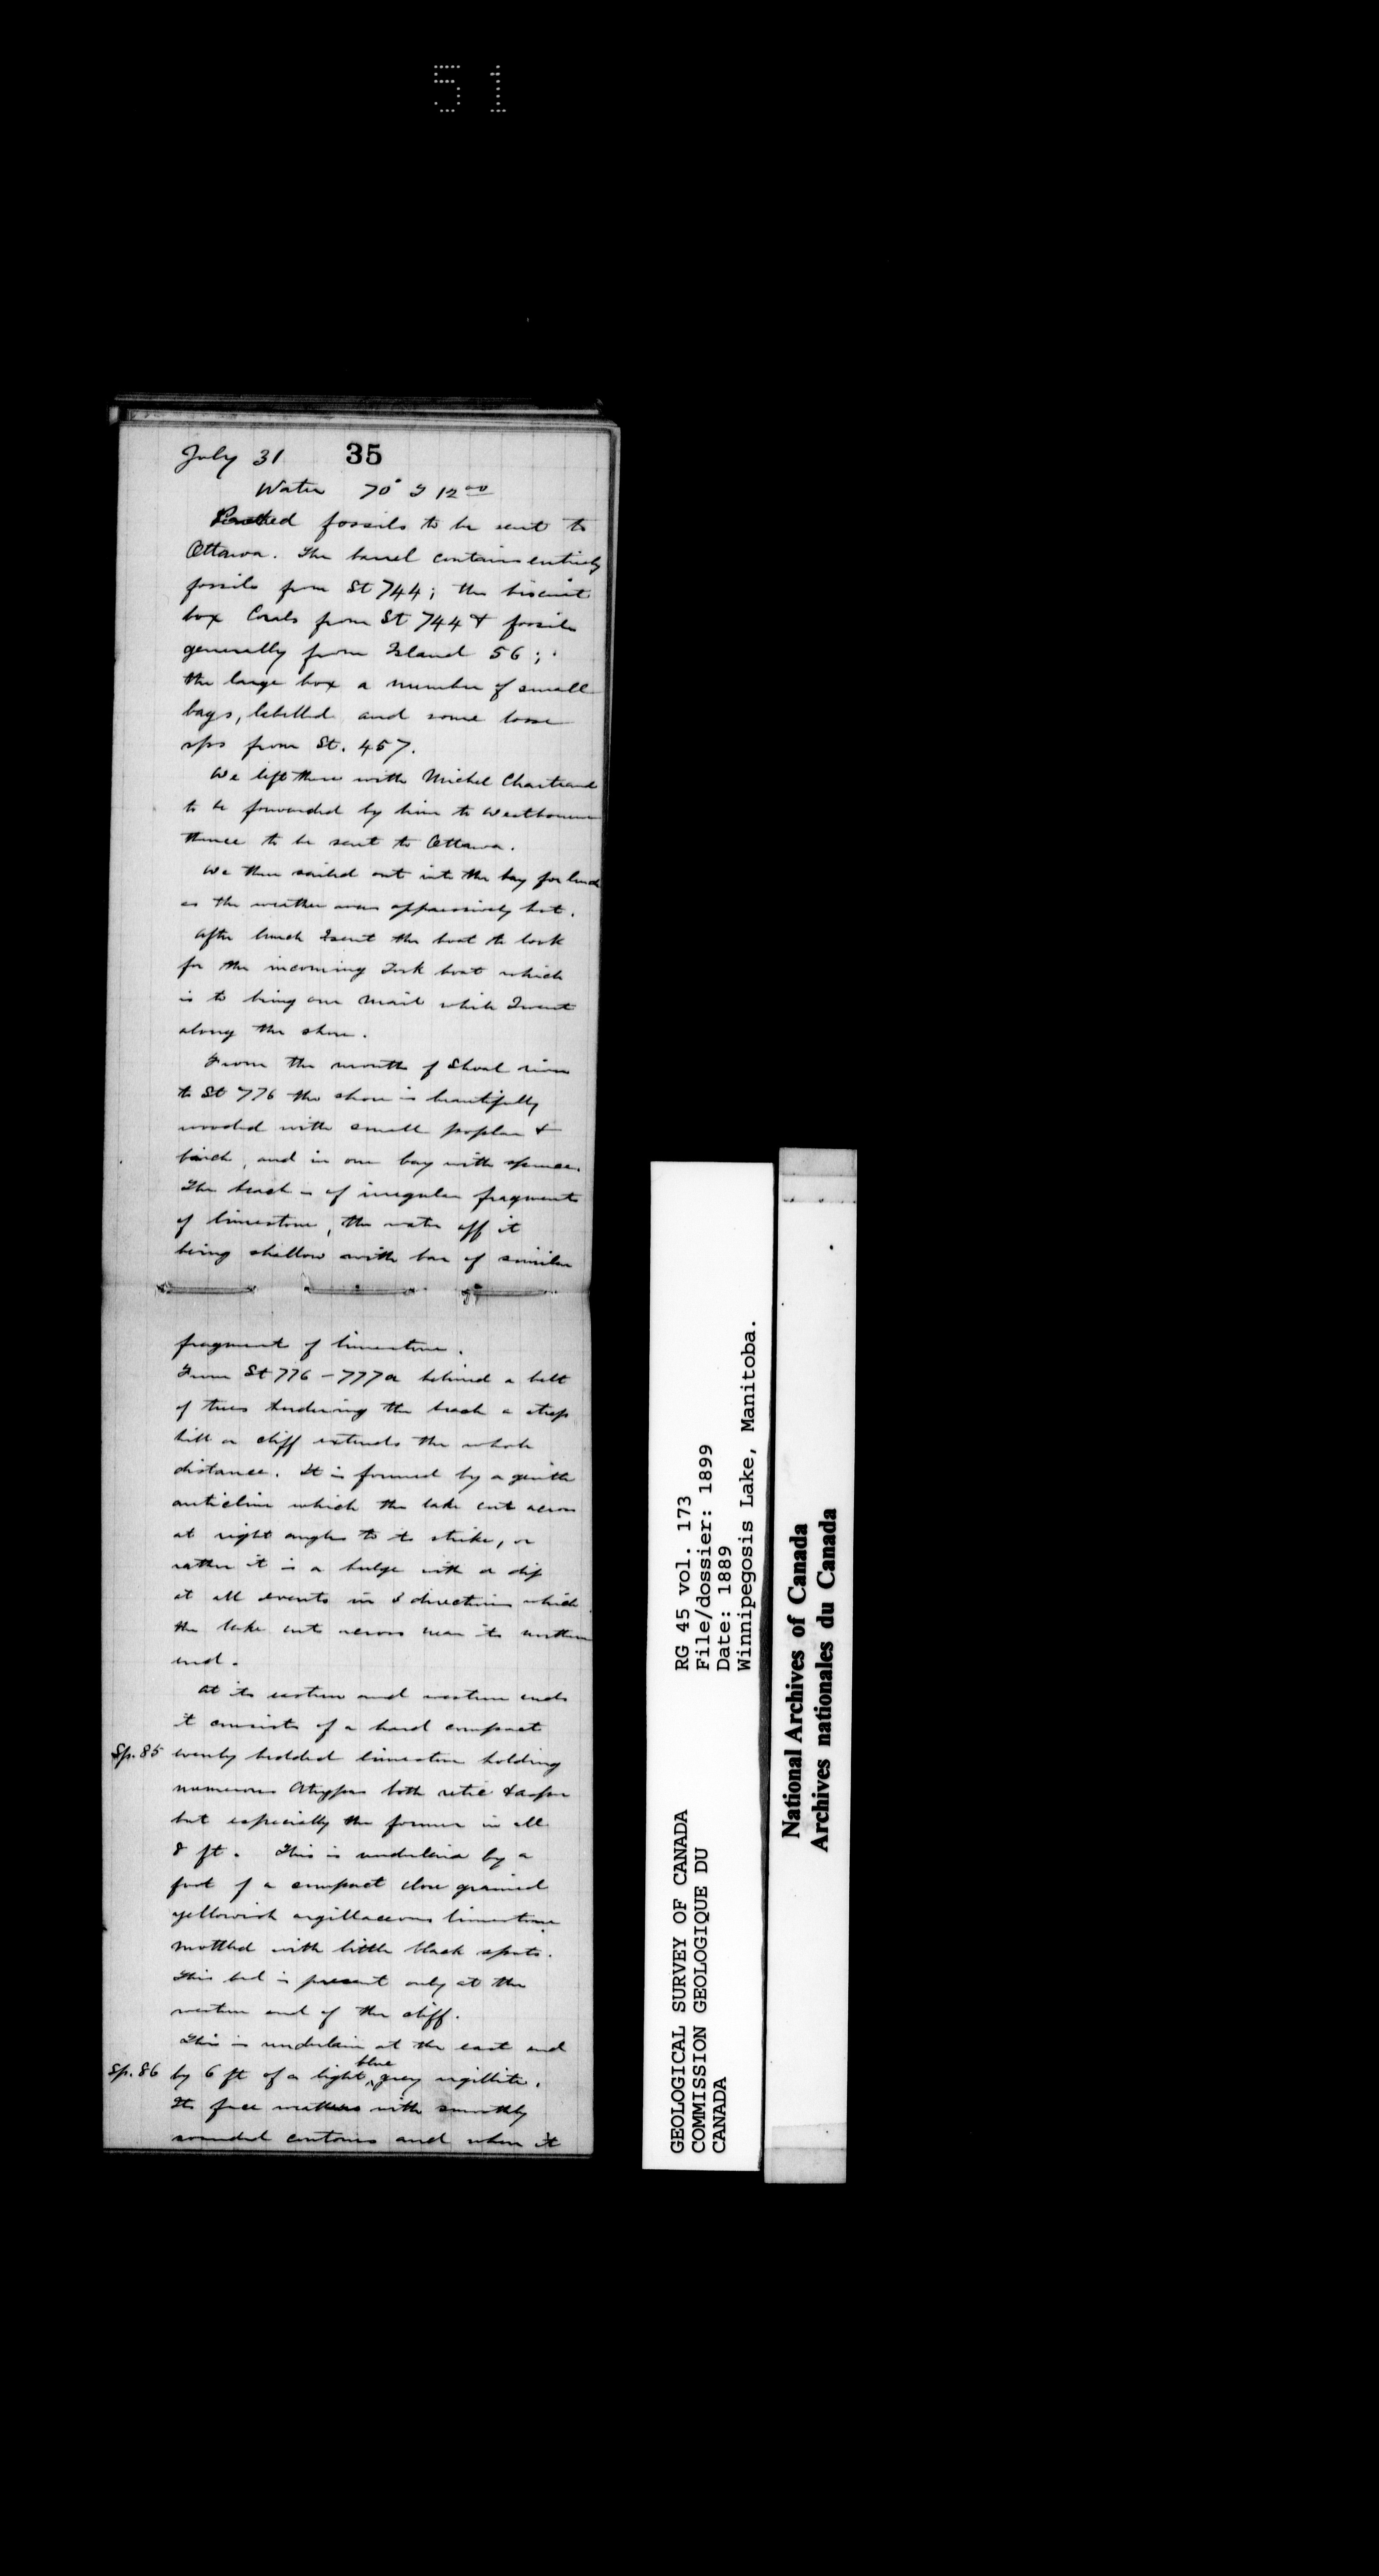 51
July 31 35
Water 70° F 12 00
Packed fossils to be sent to
Ottawa. The barrel contains entirely
fossils from St 744; the biscuit
box Corals from St 744 & fossils
generally from Island 56;
the large box a number of small
bags, labelled and some loose
sps from St. 457.
We left these with Michel Chartrand
to be forwarded by him to Westbourne
thence to be sent to Ottawa.
We then sailed out into the bay for lunch
as the weather was oppressively hot.
After lunch I sent the boat to look
for the incoming York boat which
is to bring our mail while I went
along the shore.
From the mouth of Shoal river
to St 776 the shore is beautifully
wooded with small poplar &
birch, and in one bay with spruce.
The beach is of irregular fragments
of limestone, the water off it
being shallow with bar of similar
fragment of limestone.
From St 776 - 777a behind a belt
of trees bordering the beach a steep
hill or cliff extends the whole
distance. It is formed by a gentle
anticline which the lake cut across
at right angles to its strike, or
rather it is a bulge with a dip
at all events in 3 directions which
the lake cuts across near its northern
end.
At its eastern and western ends
it consists of a hard compact
Sp. 85 evenly bedded limestone holding
numerous Atrypas both retic & asper
but especially the former in all
8 ft. This is underlain by a
foot of a compact close grained
yellowish argillaceous limestone
mottled with little black spots.
This bed is present only at the
western end of the cliff.
This is underlain at the east end
Sp. 86 by 6 ft of a light blue grey argillite.
Its face weathers with smoothly
rounded contours and when it
GEOLOGICAL SURVEY OF CANADA
COMMISSION GEOLOGIQUE DU
CANADA
RG 45 vol. 173
File/dossier: 1899
Date: 1889
Winnipegosis Lake, Manitoba.
National Archives of Canada
Archives nationales du Canada